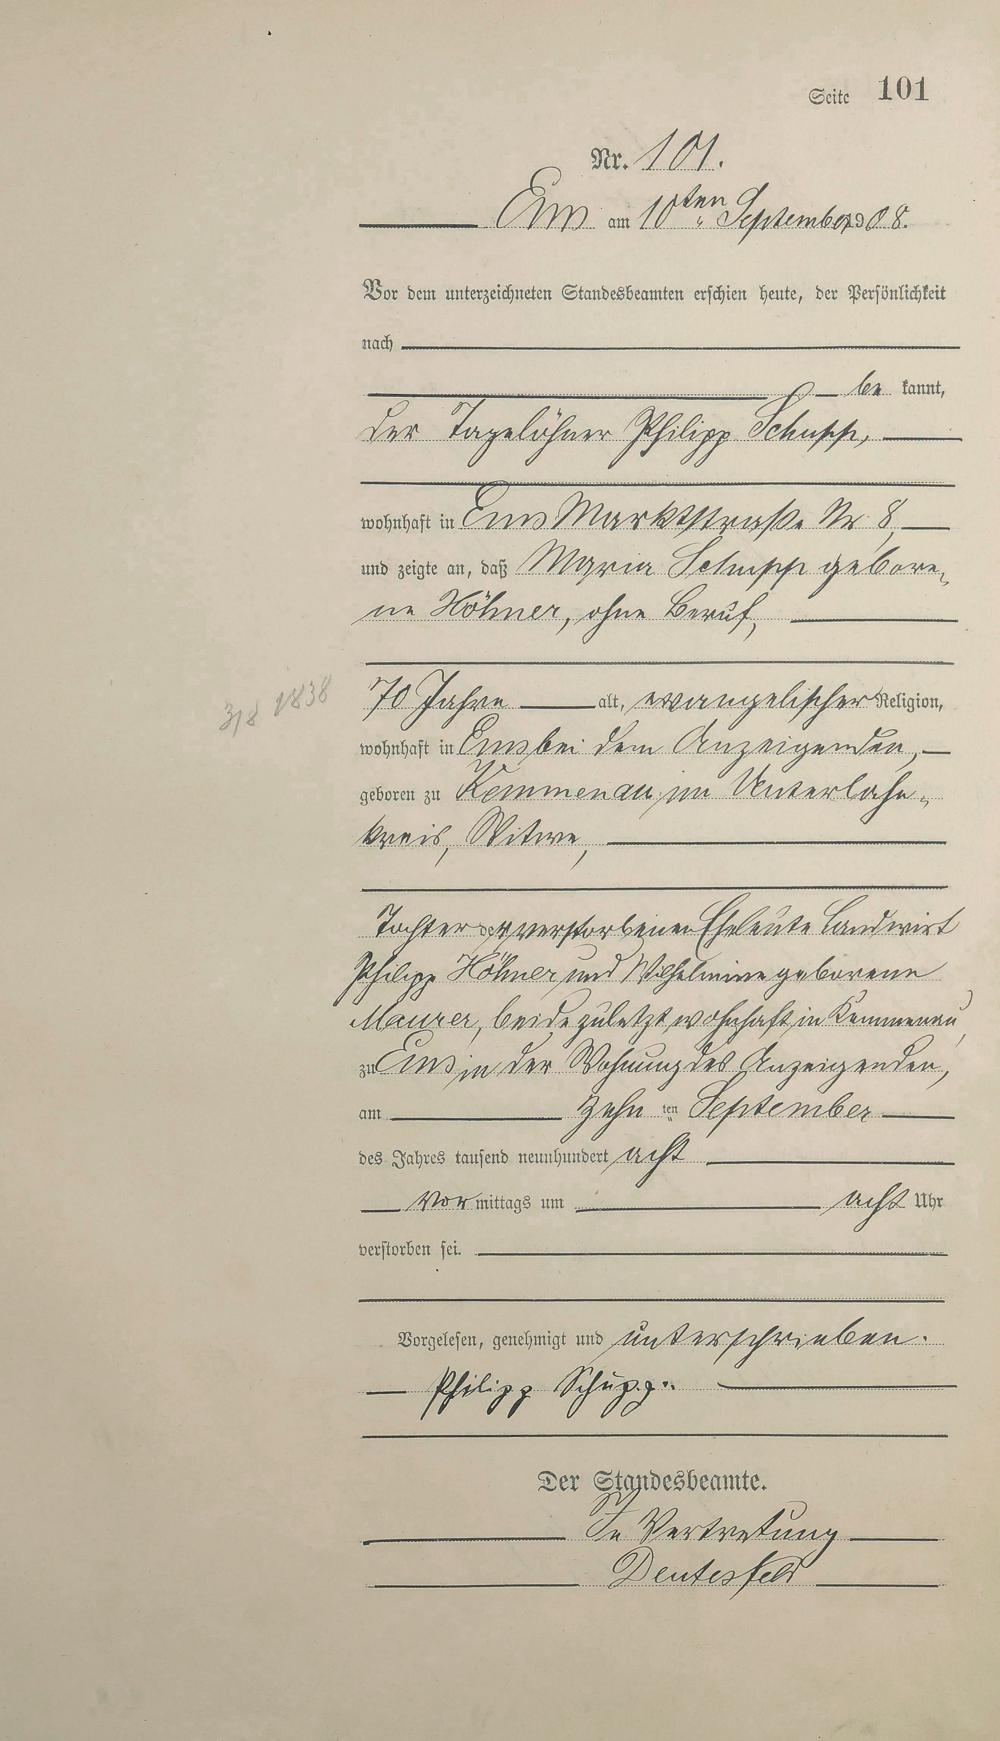 Seite 101
Nr. 101.
Ems am 10ten September 1908.
Vor dem unterzeichneten Standesbeamten erschien heute, der Persönlichkeit
nach
be kannt,
der Tagelöhner Philipp Schupp,
wohnhaft in Ems Marktstraße Nr 8,
und zeigte an, daß Maria Schupp gebore-
ne Höhner, ohne Beruf,
3/8 1838
70 Jahre alt, evangelischer Religion,
wohnhaft in Ems bei dem Anzeigenden,
geboren zu Kemmenau im Unterlahn-
kreis, Witwe,
Tochter der verstorbenen Eheleute Landwirt
Philipp Höhner und Wilhelmine geborene
Maurer, beide zuletzt wohnhaft in Kemmenau,
zu Ems in der Wohnung des Anzeigenden,
am zehn ten September
des Jahres tausend neunhundert acht
vor mittags um acht Uhr
verstorben sei.
Vorgelesen, genehmigt und unterschrieben.
Philipp Schupp.
Der Standesbeamte.
In Vertretung